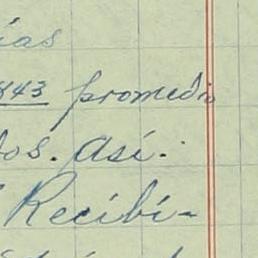 ías
843 promedio
os. Así.
Recibi-